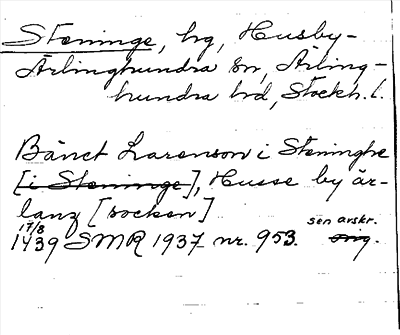 Steninge, hg, Husby-
Ärlinghundra sn, Ärling-
hundra hd, Stockh. l.
Bänct Larenson i Steninghe
[i Steninge], Husse by är-
lanz [socken]
17/8
1439 SMR 1937 nr. 953. sen avskr.
orig.